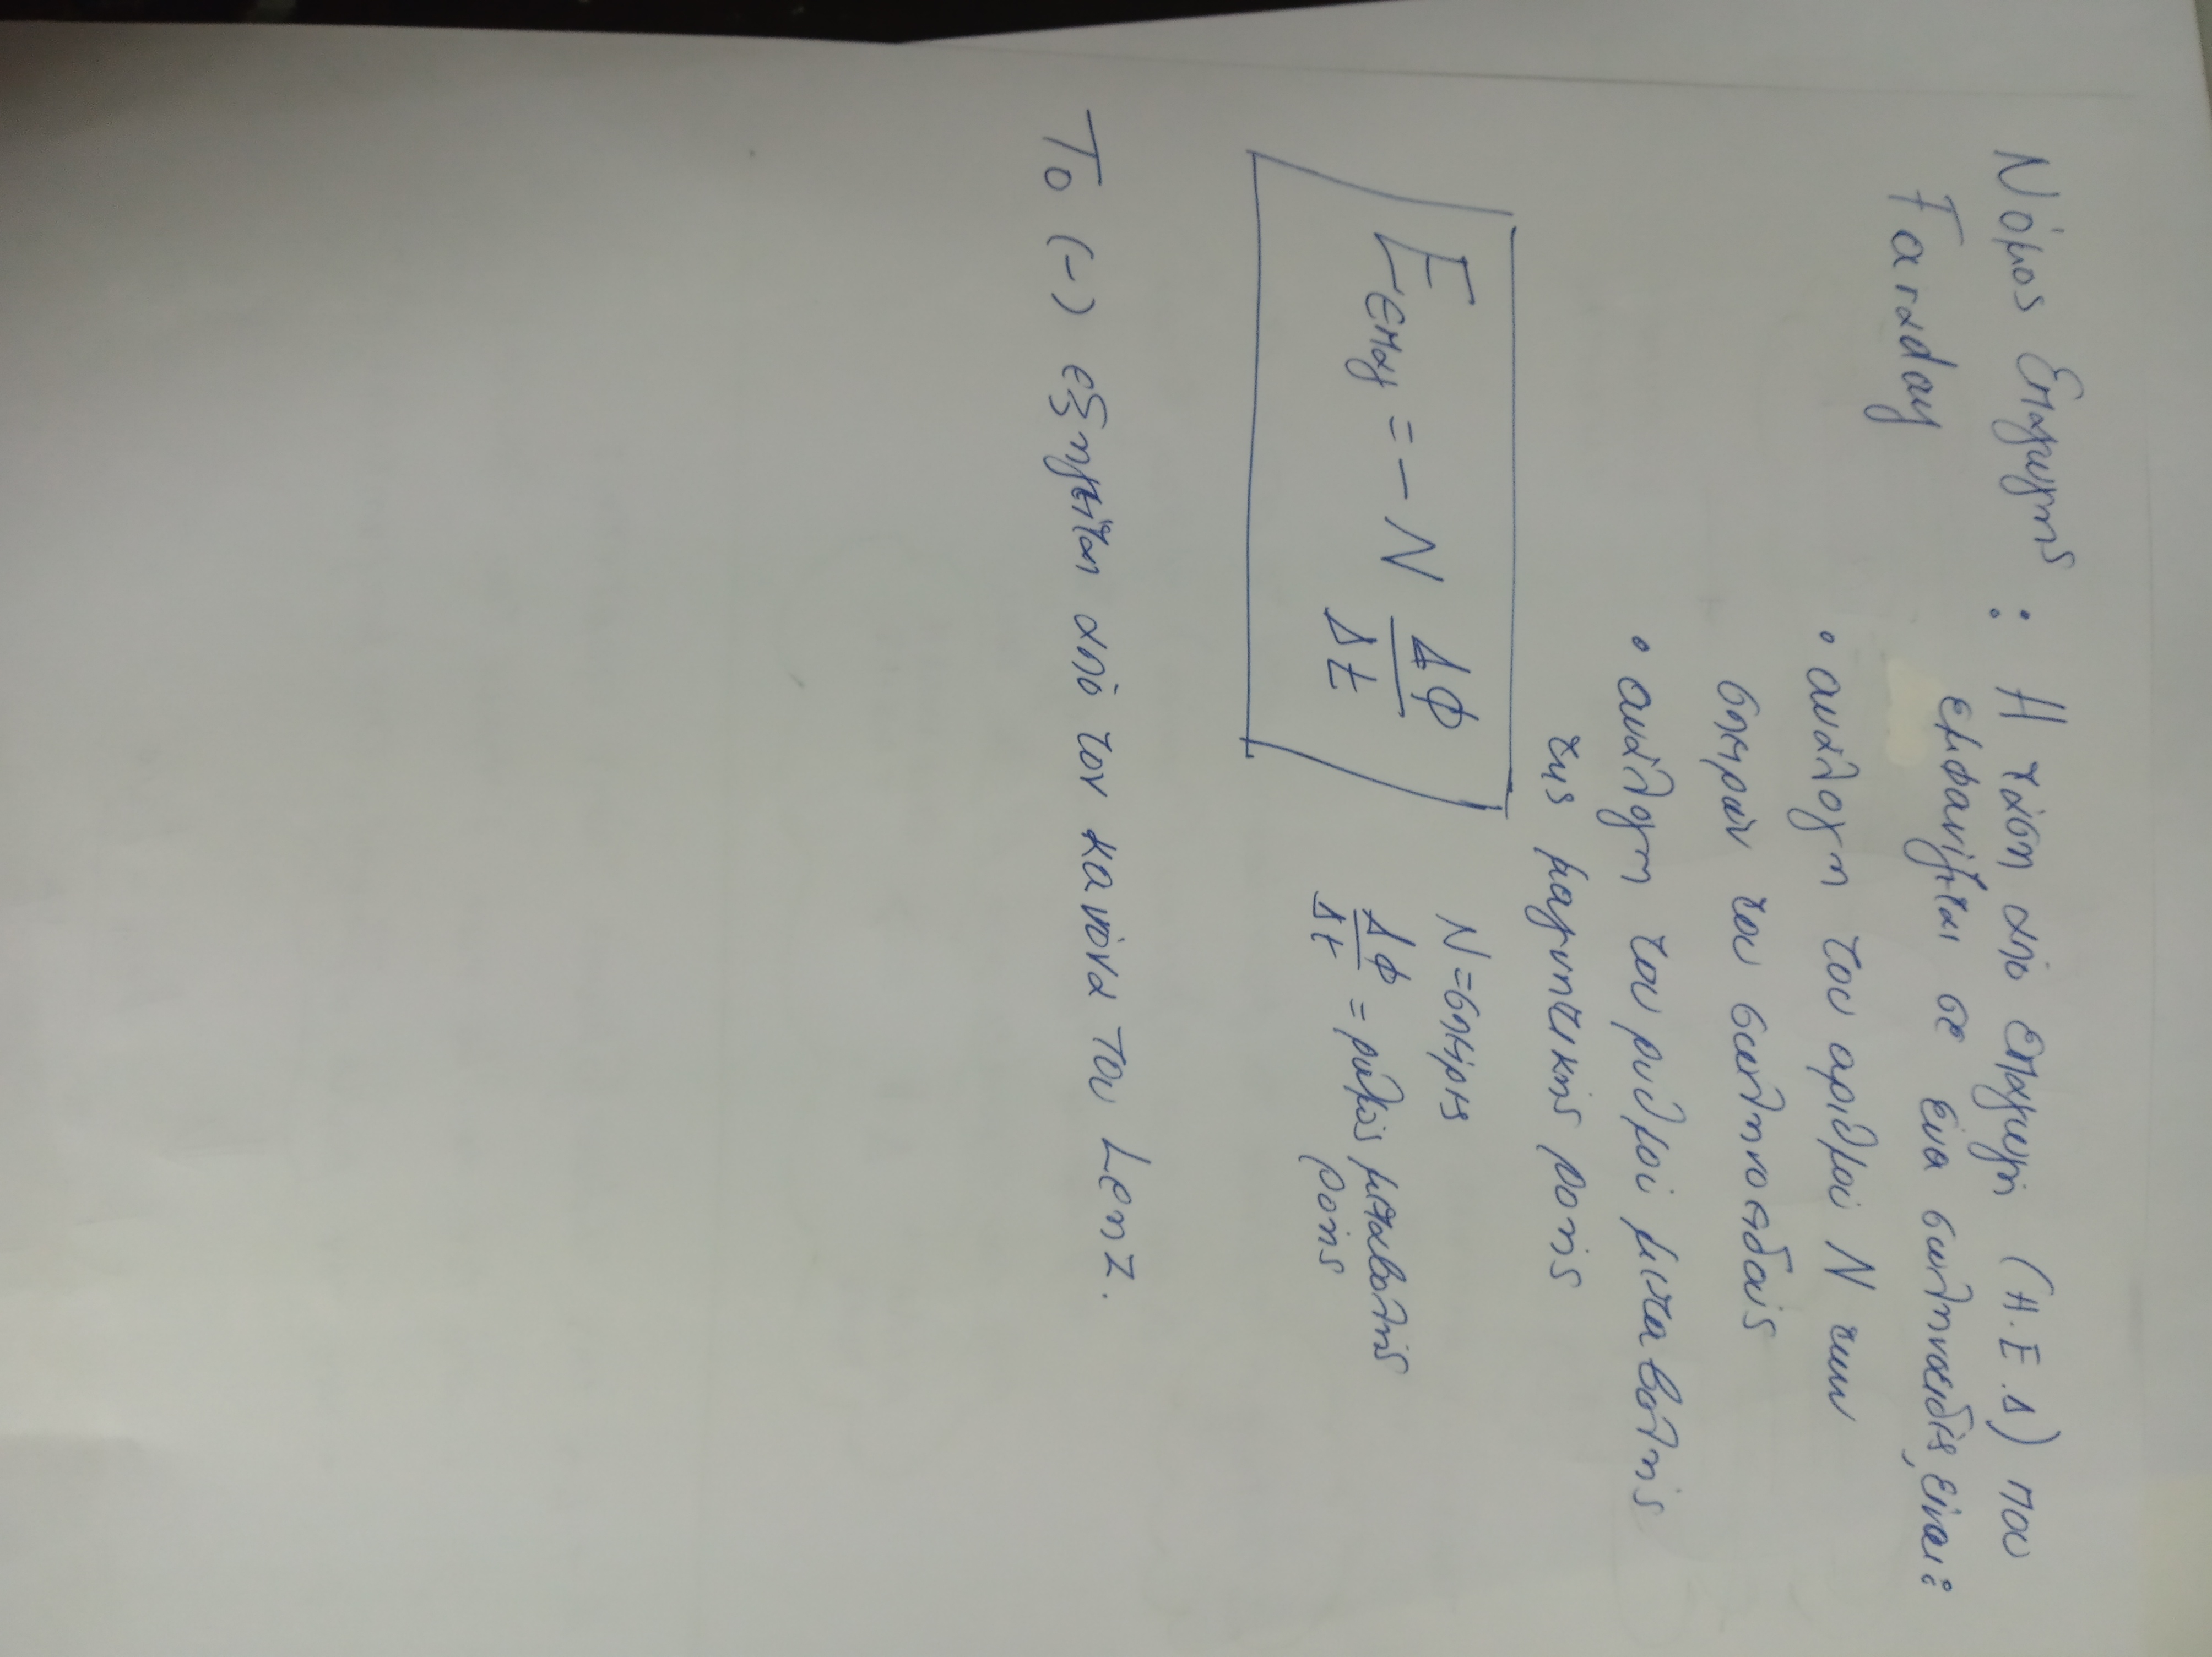 Νόμος Επαγωγής : Η τάση από επαγωγή (Η.Ε.Δ) που
Faraday
εμφανίζεται σε ένα σωληνοειδές, είναι:
• ανάλογη του αριθμού Ν των
σπειρών του σωληνοειδούς
• ανάλογη του ρυθμού μεταβολής
της μαγνητικής ροής
Εεπαγ = - Ν ΔΦ/Δt
Ν = σπείρες
ΔΦ/Δt = ρυθμός μεταβολής
ροής
Το (-) εξηγείται από τον κανόνα του Lenz.